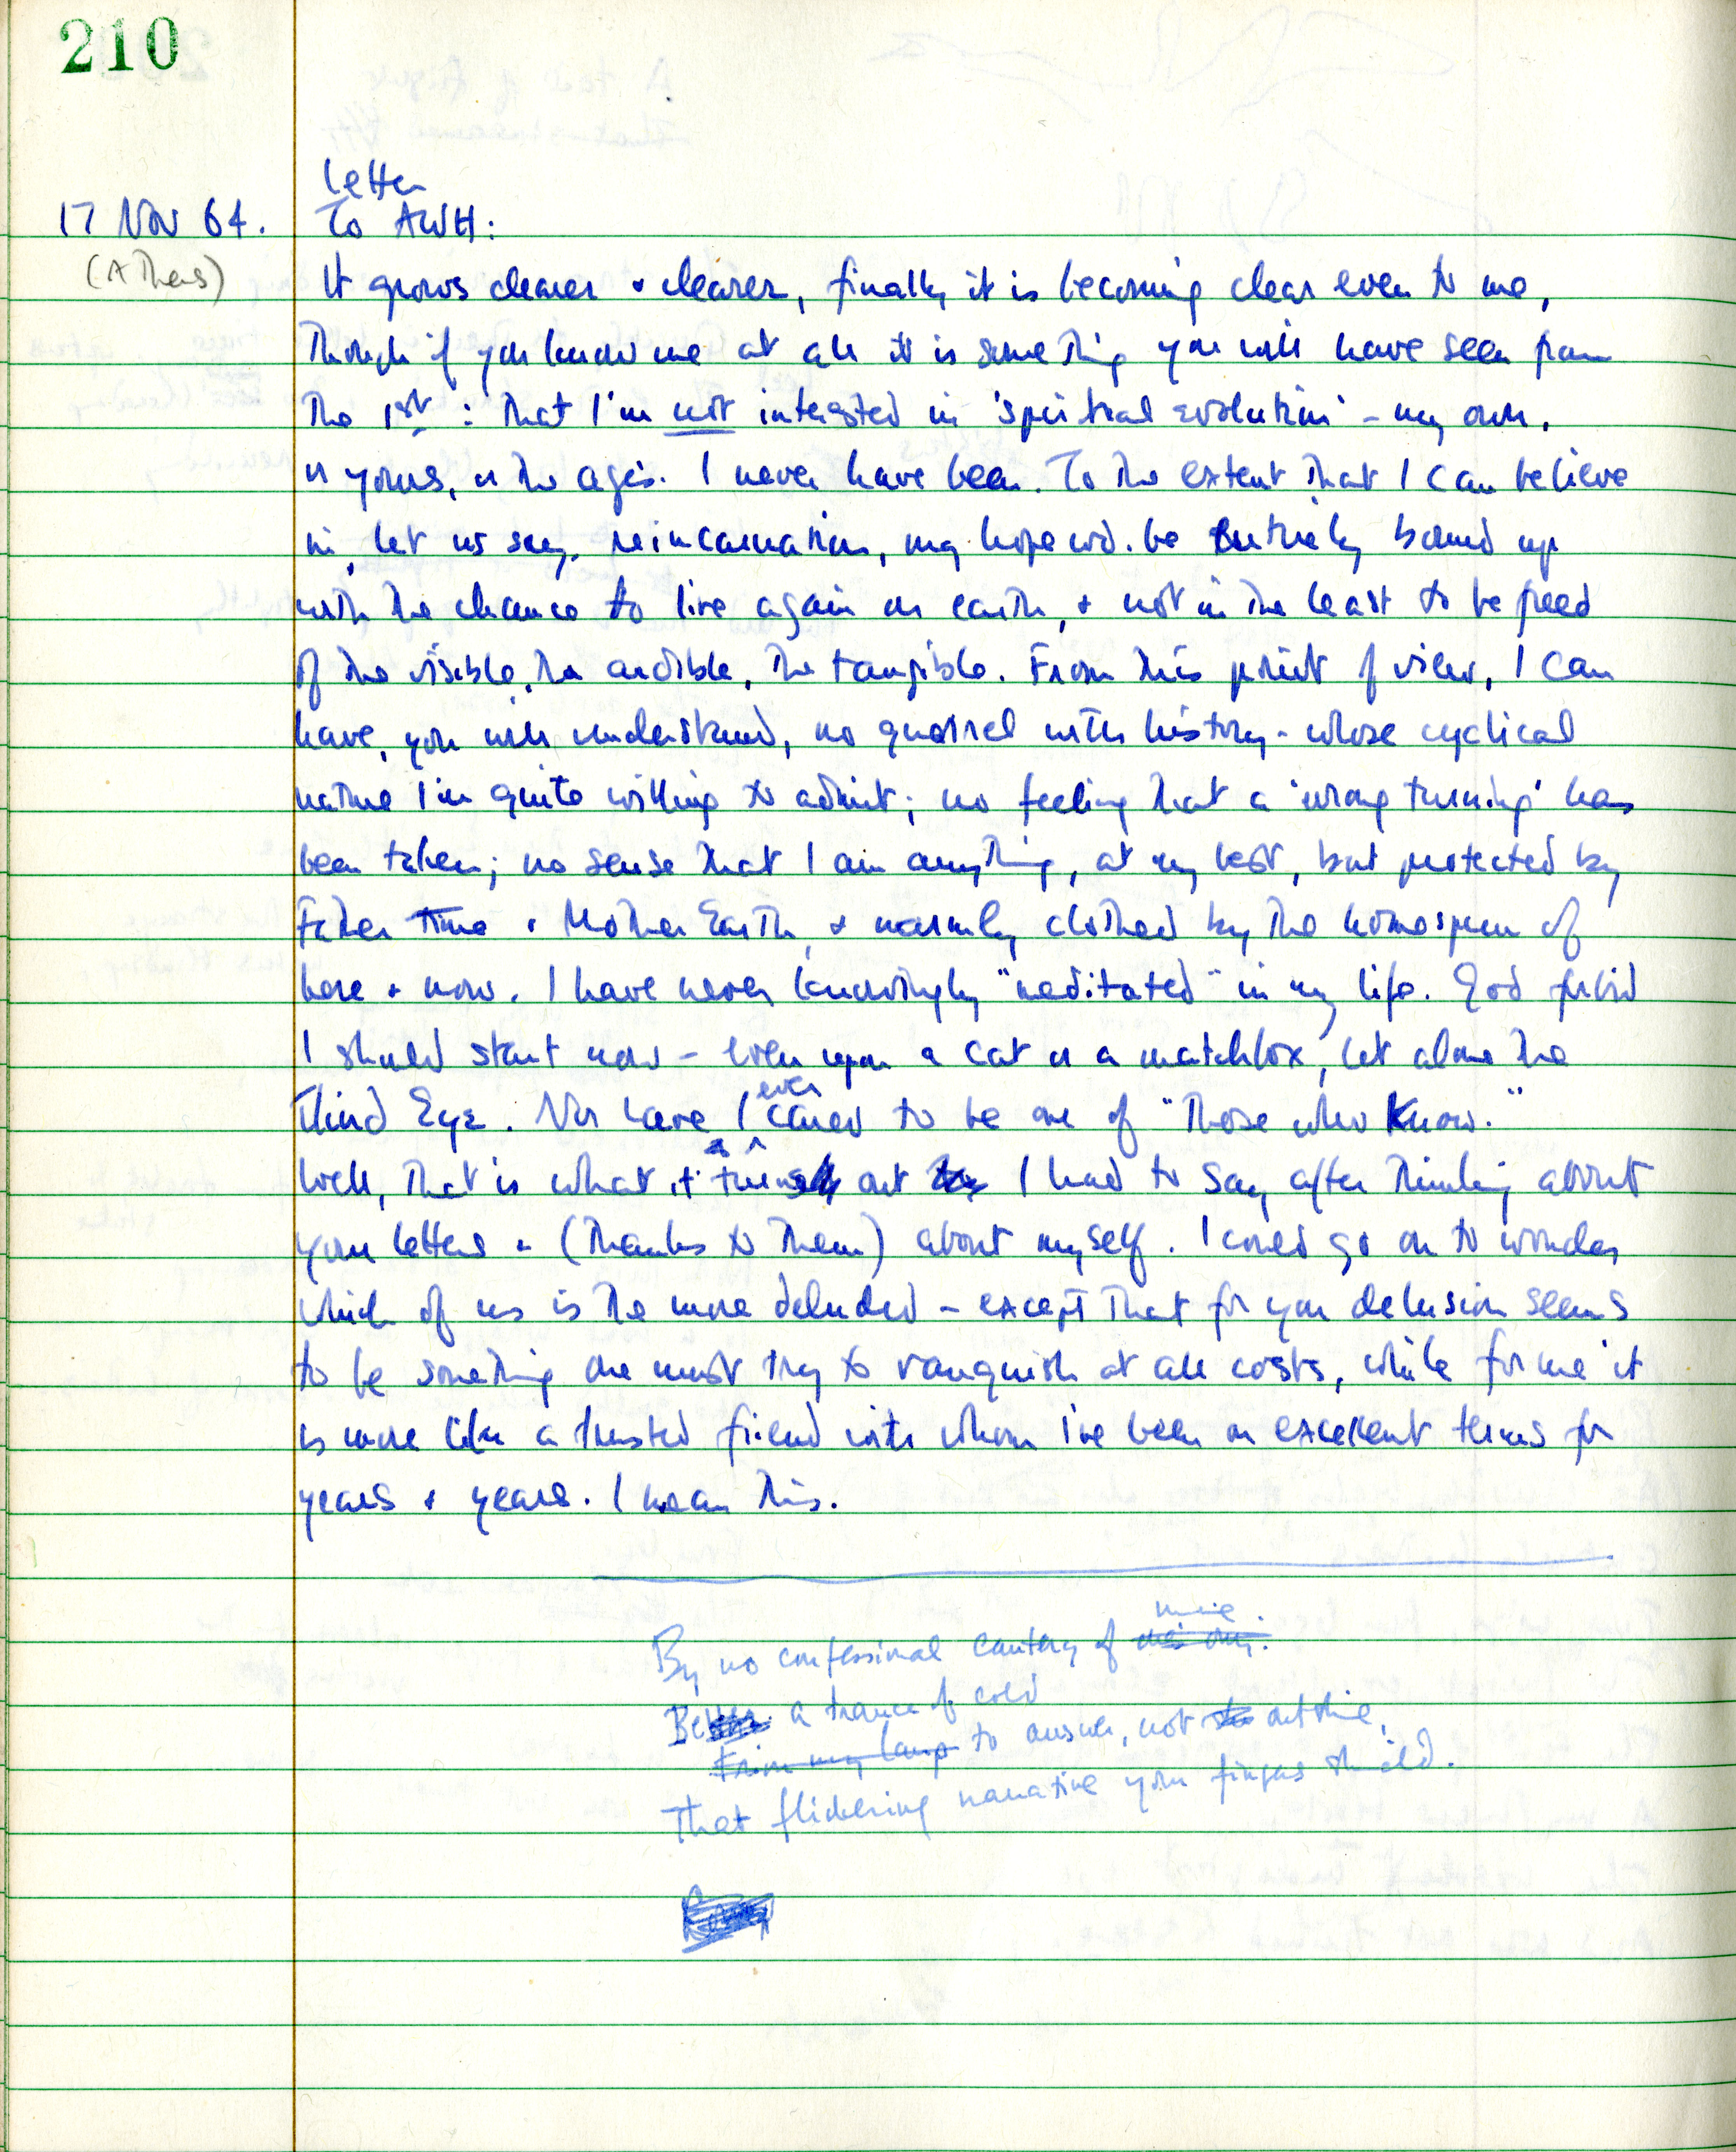 210
Letter
17 Nov 64. To AWH:
(Athens)
It grows clearer + clearer, finally it is becoming clear even to me,
Though if you know me at all it is something you will have seen from
The 1st : That I'm not interested in 'spiritual evolution' – my own,
or yours, or the age's. I never have been. To the extent that I can believe
in, let us say, reincarnation, my hope wd. be entirely bound up
with the chance to live again on earth, + not in the least to be freed
of the visible, the audible, the tangible. From this point of view, I can
have, you will understand, no quarrel with history – whose cyclical
nature I'm quite willing to admit; no feeling that a 'wrong turning' has
been taken; no sense that I am anything, at my best, but protected by
Father Time + Mother Earth, + warmly clothed by the homespun of
here + now. I have never knowingly "meditated" in my life. God forbid
I should start now – even upon a cat or a matchbox, let alone the
Third Eye. Nor have I ever cared to be one of "Those who Know."
Well, that is what it turns out I had to say after thinking about
your letters + (thanks to them) about myself. I could go on to wonder
which of us is the more deluded – except that for you delusion seems
to be something one must try to vanquish at all costs, while for me it
is more like a trusted friend with whom I've been on excellent terms for
years + years. I mean this.
mine.
By no confessional cautery of
a trance of cold
Trim my lamp to answer, not outshine,
That flickering narrative your fingers shield.